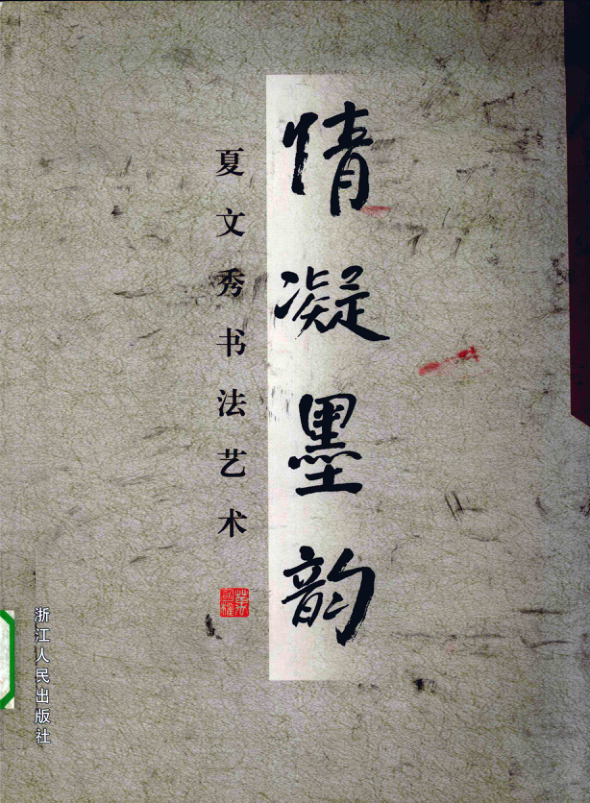 情凝墨韵
夏文秀书法艺术
浙江人民出版社